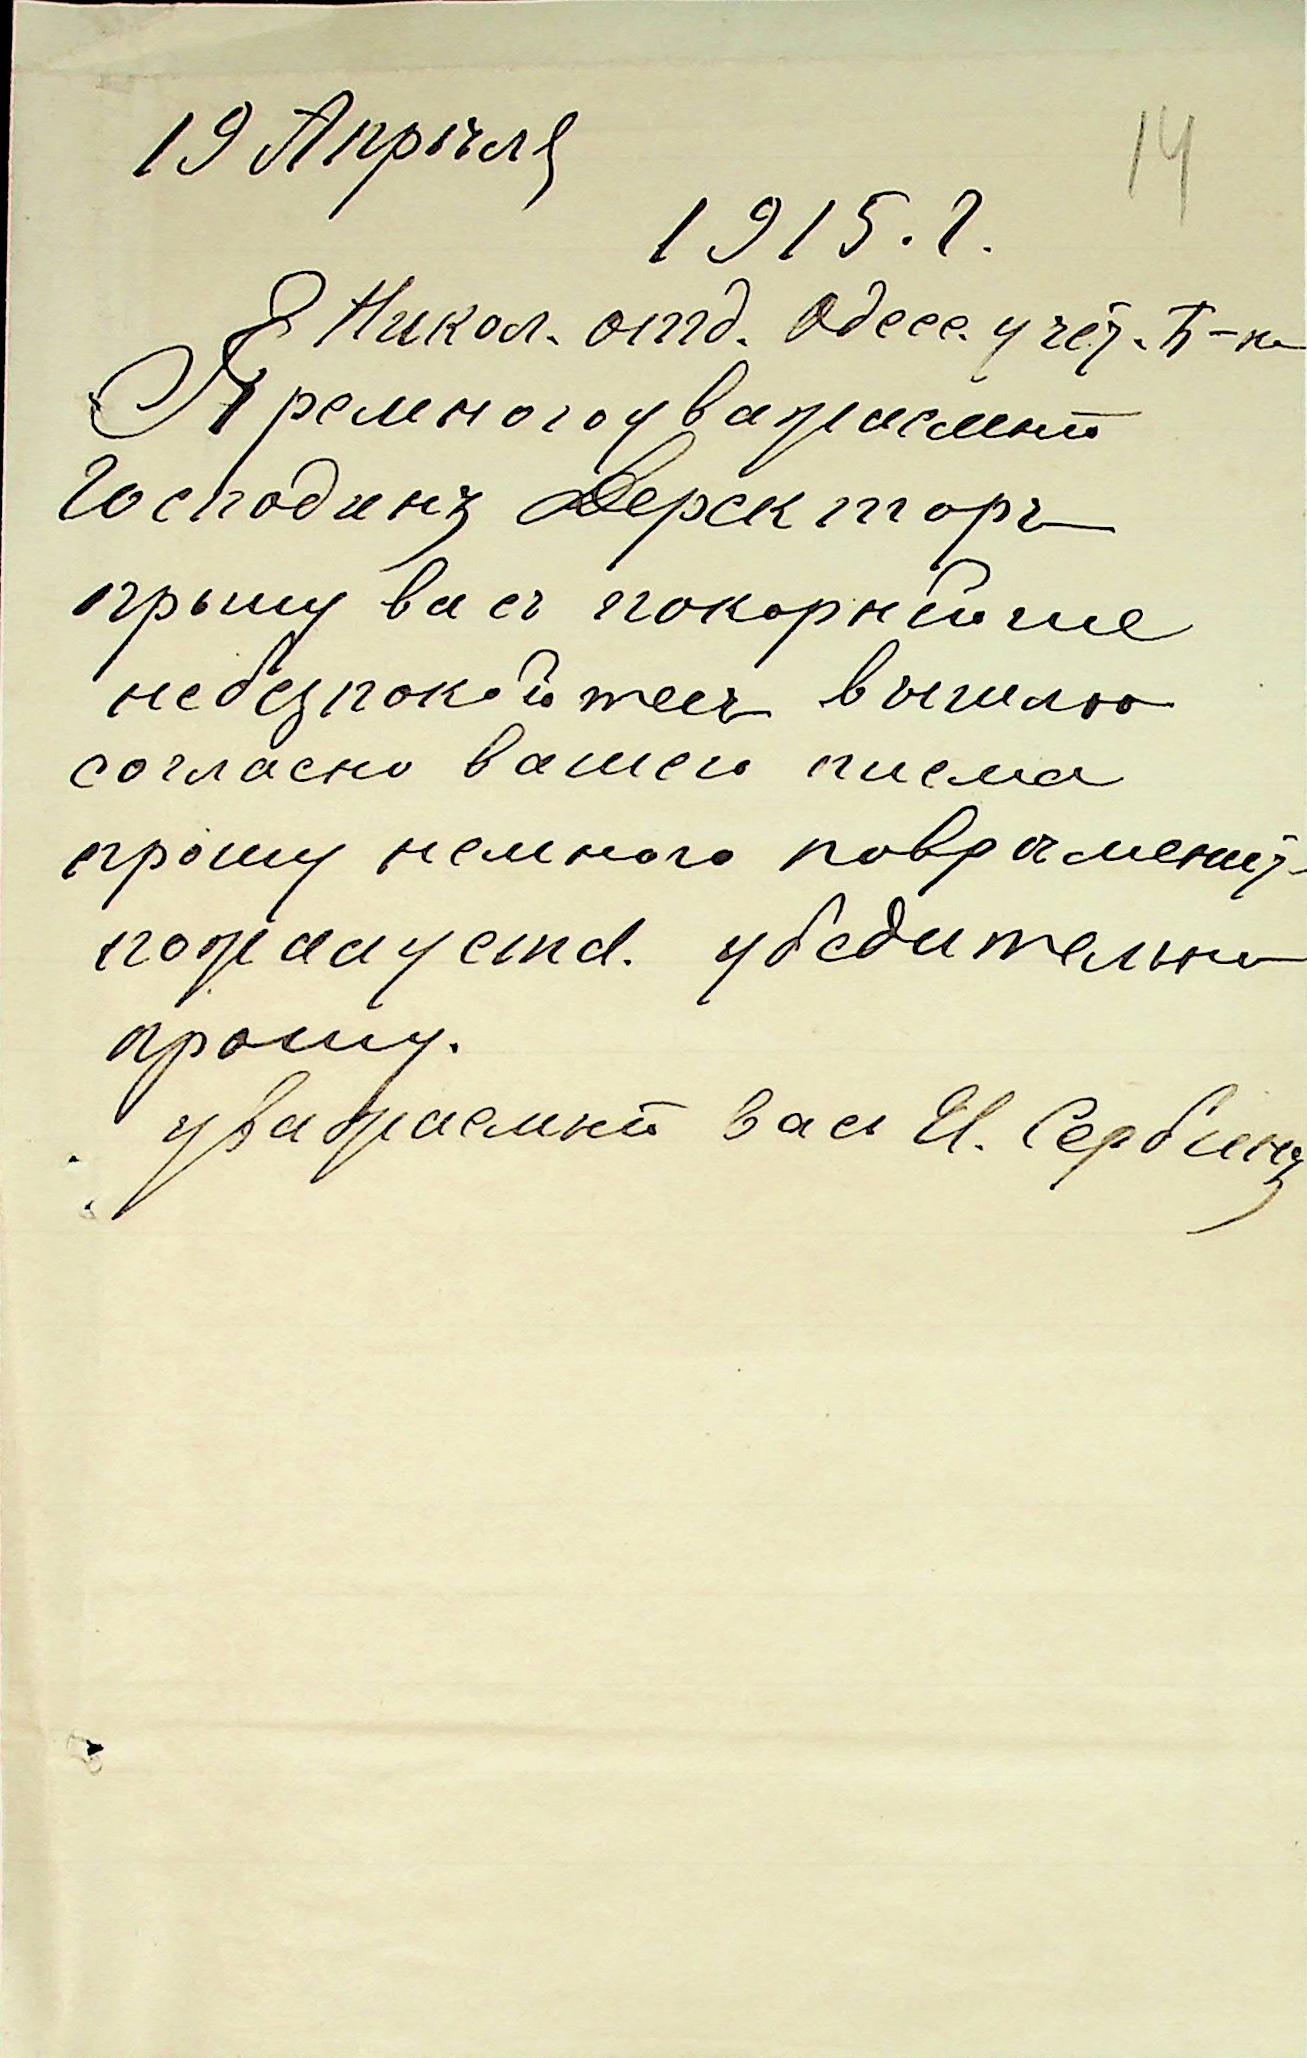 19 Апрыля
14
1915. г.
В Никол. отд. Одесс. учет. Б-ка
Премногоуважаемый
Господинъ Деректоръ
прышу васъ покорнейше
небезпокойтесъ вышлю
согласно вашего писма
прошу немного
пожалуста. убедительно
прошу.
уважаемый васъ И. Сербинъ